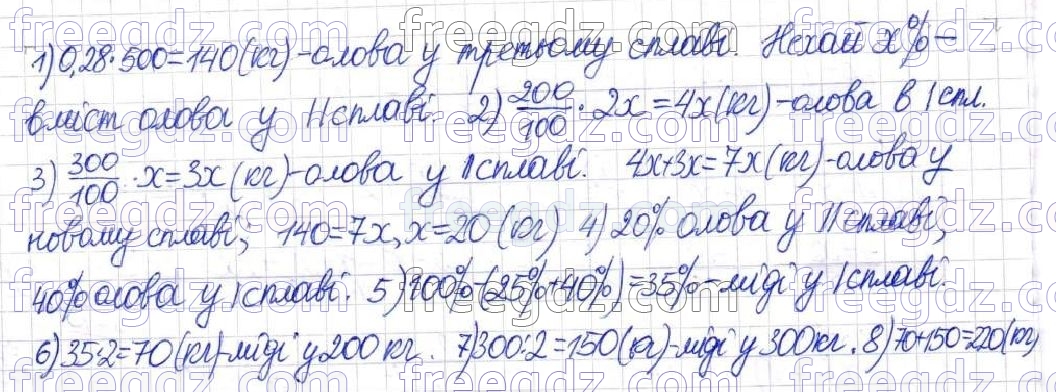 1) 0,28·500=140(кг)-олова у третьому сплаві. Нехай x% –
вміст олова у II сплаві. 2) 200/100 · 2x = 4x (кг) - олова в I спл.
3) 300/100 · x = 3x (кг) - олова у II сплаві. 4x+3x=7x (кг) - олова у
новому сплаві; 140=7x, x=20 (кг) 4) 20% олова у II сплаві,
40% олова у I сплаві. 5) 100%-(25%+40%)=35% - міді у I сплаві.
6) 35·2=70 (кг)-міді у 200 кг. 7) 300:2=150 (кг)-міді у 300 кг. 8) 70+150=220(кг)